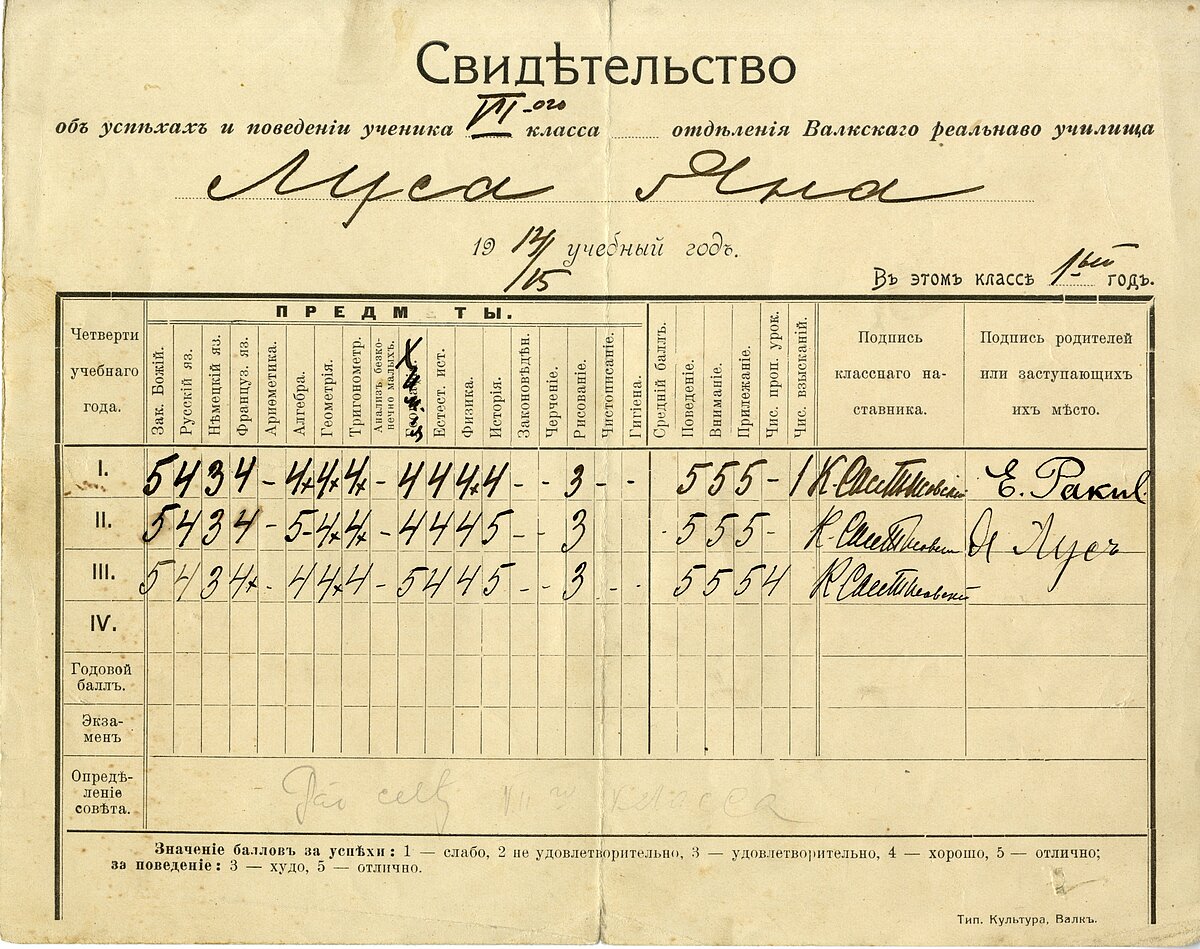 Свидѣтельство
объ успѣхахъ и поведеніи ученика VII-ого класса отдѣленія Валкскаго реальнаво училища
Луса Яна
19 14/15 учебный годъ.
Въ этомъ классѣ 1-ый годъ.
Четверти учебнаго года.
ПРЕДМ ТЫ.
Зак. Божій.
Русскій яз.
Нѣмецкій яз.
Француз. яз.
Ариѳметика.
Алгебра.
Геометрія.
Тригонометр.
Анализъ безко-
нечно малыхъ.
Естест. ист.
Физика.
Исторія.
Законовѣдѣн.
Черченіе.
Рисованіе.
Чистописаніе.
Гигіена.
Средній баллъ.
Поведеніе.
Вниманіе.
Прилежаніе.
Чис. проп. урок.
Чис. взысканій.
Подпись класснаго на-
ставника.
Подпись родителей
или заступающихъ
ихъ мѣсто.
I. 5 4 3 4 - 4+ 4+ 4+ - 4 4 4+ 4 - - 3 - - 5 5 5 - 1
II. 5 4 3 4 - 5- 4+ 4+ - 4 4 4 5 - - 3 - 5 5 5 - Я Лусъ
III. 5 4 3 4+ - 4 4+ 4 - 5 4 4 5 - - 3 - 5 5 5 4
IV.
Годовой
баллъ.
Экза-
менъ
Опредѣ-
леніе
совѣта.
класса
Значеніе балловъ за успѣхи: 1 — слабо, 2 не удовлетворительно, 3 — удовлетворительно, 4 — хорошо, 5 — отлично;
за поведеніе: 3 — худо, 5 — отлично.
Тип. Культура, Валкъ.